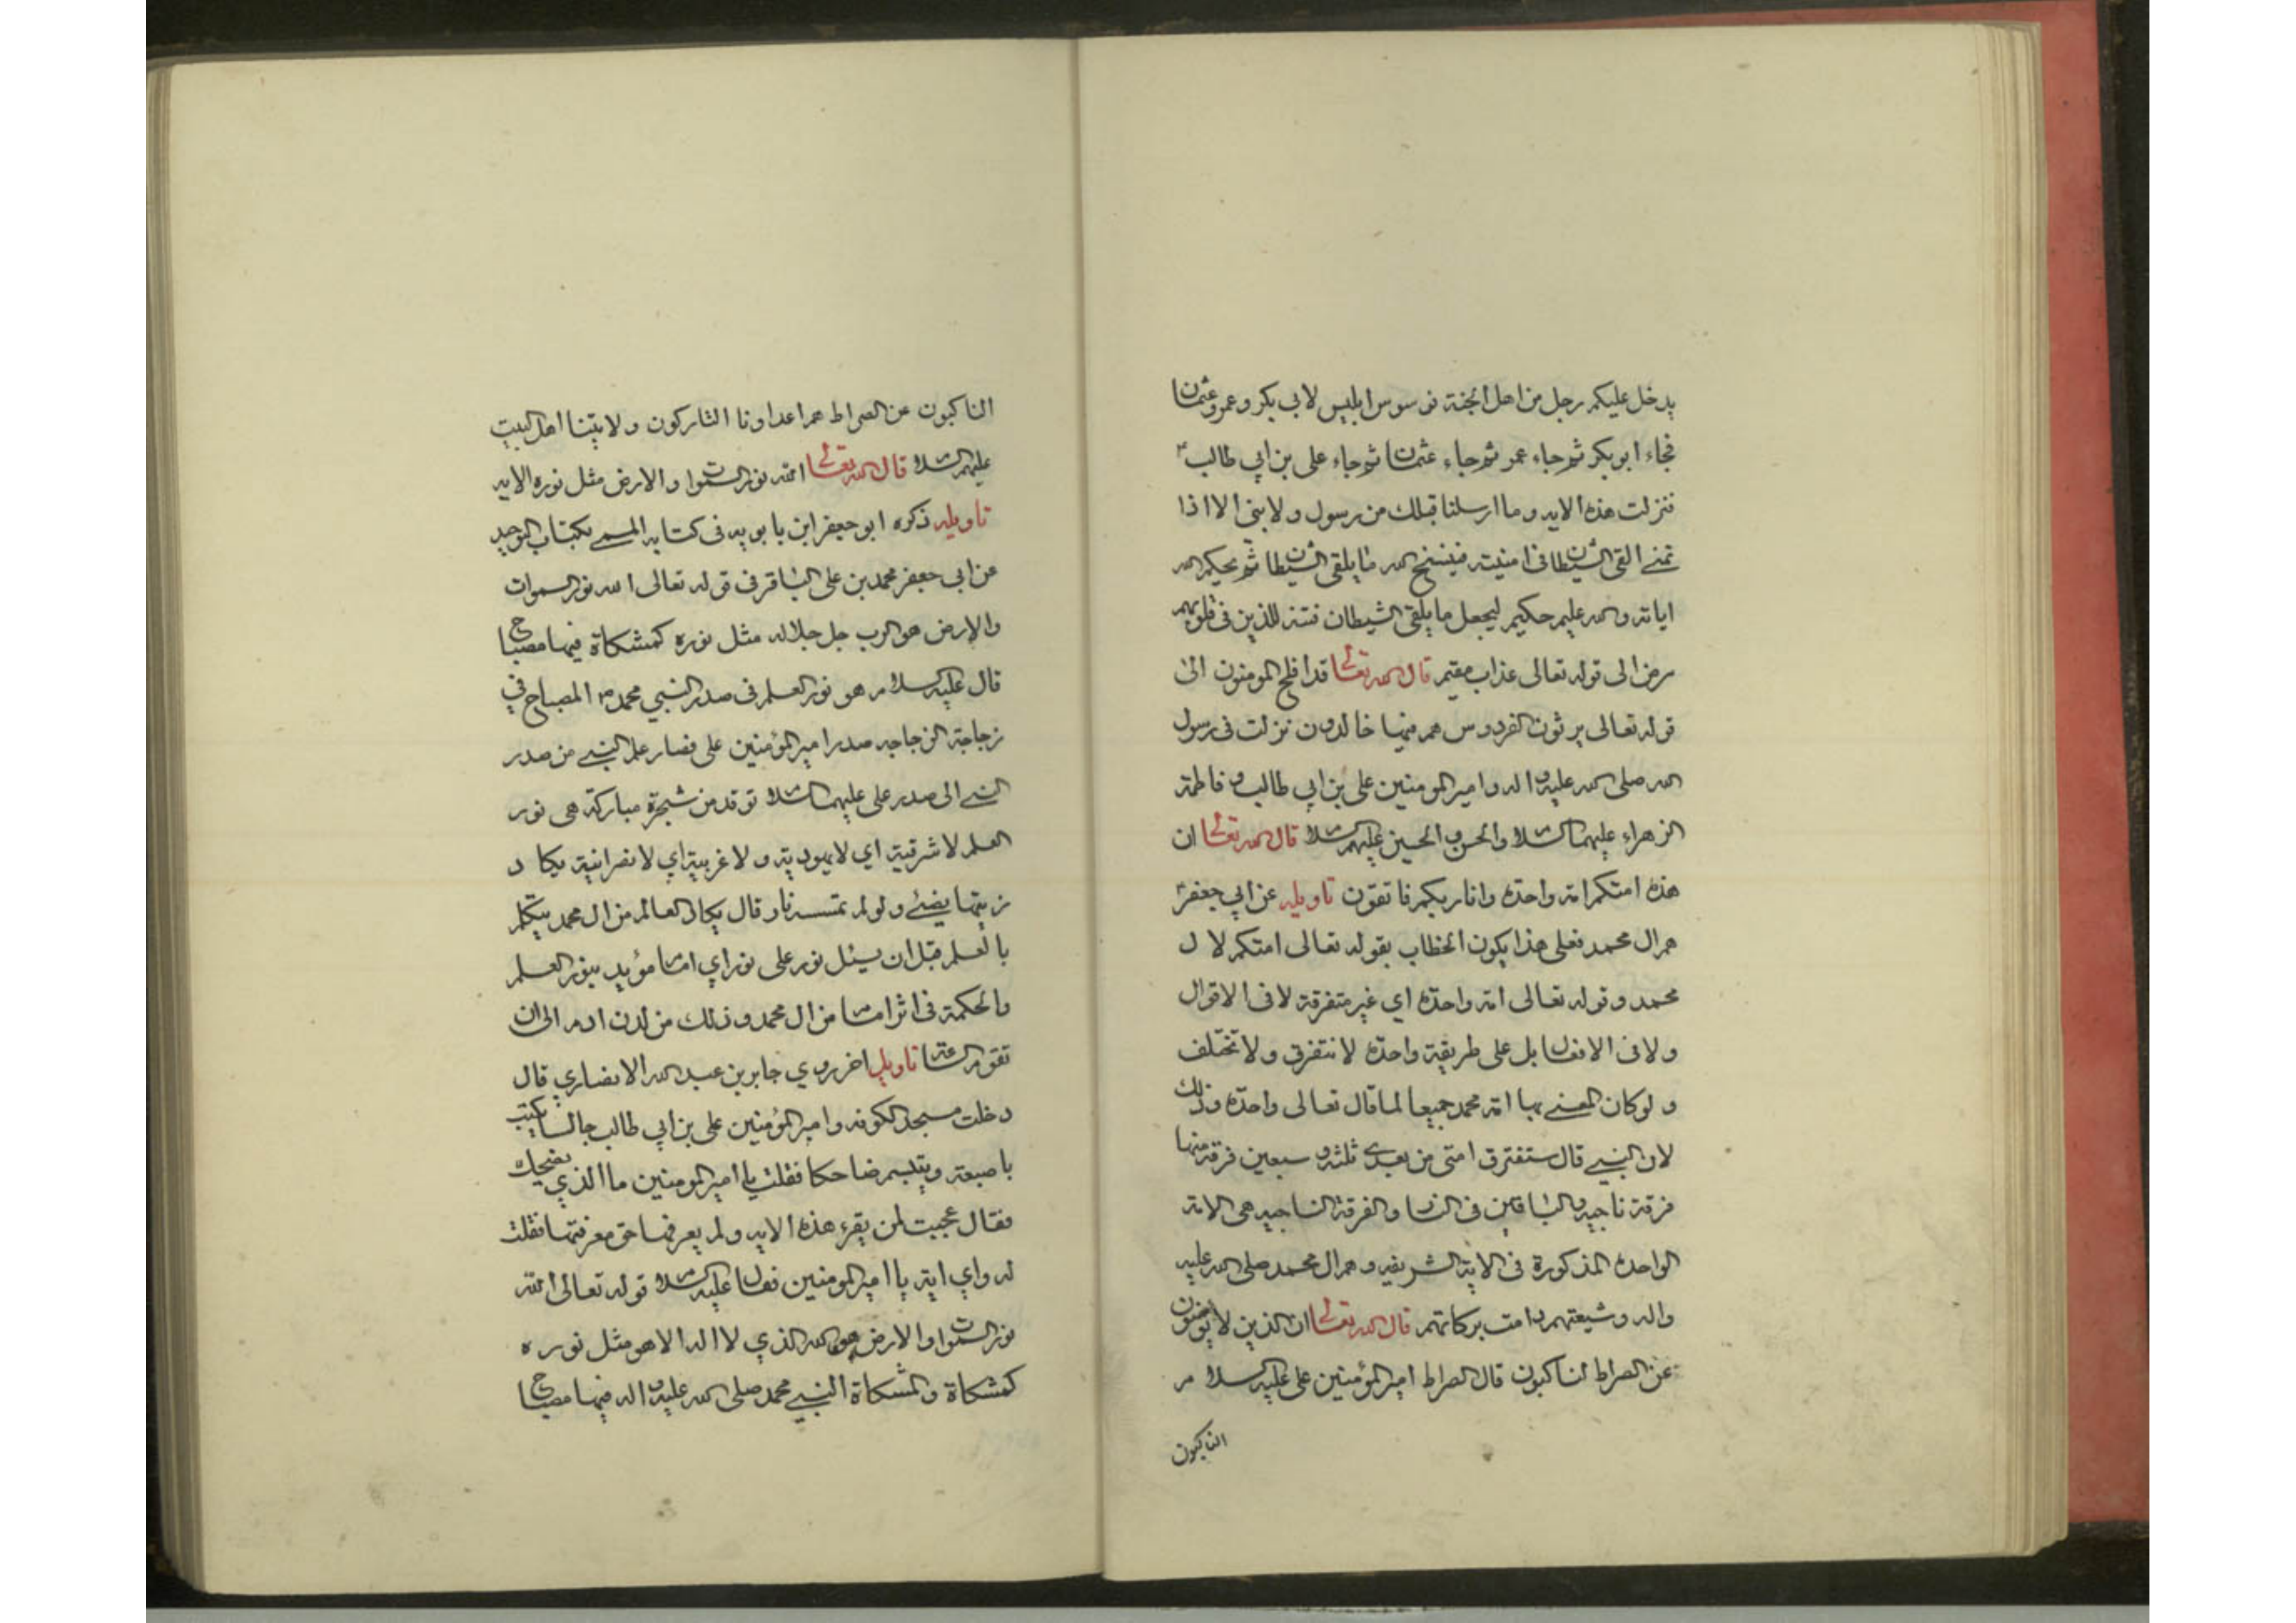 يدخل عليكم رجل من اهل الجنة فوسوس ابليس لابي بكر وعمر وعثمان
فجاء ابو بكر ثم جاء عمر ثم جاء عثمان ثم جاء علي بن ابي طالب
فنزلت هذه الايه وما ارسلنا قبلك من رسول ولا نبي الا اذا
تمنى القى الشيطان في امنيته فينسخ الله ما يلقى الشيطان ثم يحكم الله
اياته والله عليم حكيم ليجعل ما يلقي الشيطان فتنة للذين في قلوبهم
مرض الى قوله تعالى عذاب مقيم قال الله تعالى قد افلح المومنون الى
قوله تعالى يرثون الفردوس هم فيها خالدون نزلت في رسول
الله صلى الله عليه واله وامير المومنين علي بن ابي طالب وفاطمة
الزهراء عليهما السلام والحسن والحسين عليهم السلام قال الله تعالى ان
هذه امتكم امة واحدة وانا ربكم فاتقون تاويله عن ابي جعفر
هم ال محمد فعلى هذا يكون الخطاب بقوله تعالى امتكم لال
محمد وقوله تعالى امة واحدة اي غير متفرقة لا في الاقوال
ولا في الافعال بل على طريقة واحدة لا تتفرق ولا تختلف
ولو كان المعنى بها امة محمد جميعا لما قال تعالى واحدة وذلك
لان النبي قال ستفترق امتي من بعدي ثلثة وسبعين فرقة منها
فرقة ناجيه والباقين في النار والفرقة الناجيه هي الامة
الواحدة المذكورة في الاية الشريفه وهم ال محمد صلى الله عليه
واله وشيعتهم دامت بركاتهم قال الله تعالى ان الذين لا يومنون
عن الصراط لناكبون قال الصراط امير المؤمنين علي عليه السلام
الناكبون
الناكبون عن الصراط هم اعداونا التاركون ولايتنا اهل البيت
عليهم السلام قال الله تعالى الله نور السموات والارض مثل نوره الايه
تاويله ذكره ابو جعفر ابن بابويه في كتابه المسمى بكتاب التوحيد
عن ابي جعفر محمد بن علي الباقر في قوله تعالى الله نور السموات
والارض هو الرب جل جلاله مثل نوره كمشكاة فيها مصباح
قال عليه السلام هو نور العلم في صدر النبي محمد المصباح في
زجاجة الزجاجه صدر امير المؤمنين علي فصار علم النبي من صدر
النبي الى صدر علي عليهما السلام توقد من شجرة مباركة هي نور
العلم لا شرقية اي لا يهودية ولا غربية اي لا نصرانية يكاد
زيتها يضئ ولو لم تمسسه نار قال يكاد العالم من ال محمد يتكلم
بالعلم قبل ان يسئل نور على نور اي امام مؤيد بنور العلم
والحكمة في اثر امام من ال محمد وذلك من لدن ادم الى ان
تقوم الساعة تاويل اخر روي جابر بن عبد الله الانصاري قال
دخلت مسجد الكوفه وامير المؤمنين علي بن ابي طالب جالس يكتب
باصبعه ويتبسم ضاحكا فقلت يا امير المومنين ما الذي يضحك
فقال عجبت لمن يقرء هذه الايه ولم يعرفها حق معرفتها فقلت
له واي اية يا امير المومنين فقال عليه السلام قوله تعالى الله
نور السموات والارض هو الله الذي لا اله الا هو مثل نوره
كمشكاة والمشكاة النبي محمد صلى الله عليه واله فيها مصباح